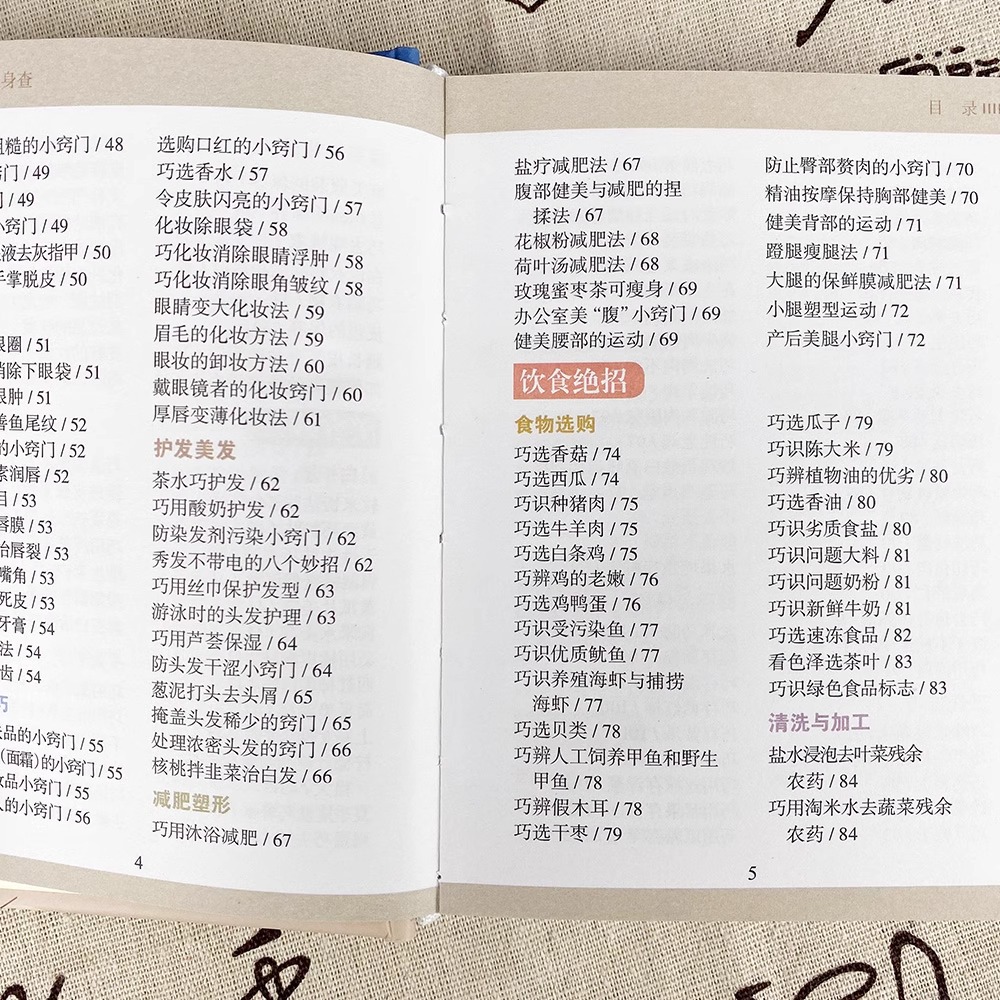 身查
粗糙的小窍门 / 48
窍门 / 49
门 / 49
小窍门 / 49
液去灰指甲 / 50
手掌脱皮 / 50
眼圈 / 51
消除下眼袋 / 51
眼肿 / 51
鱼尾纹 / 52
的小窍门 / 52
素润唇 / 52
/ 53
唇膜 / 53
治唇裂 / 53
嘴角 / 53
死皮 / 53
牙膏 / 54
法 / 54
齿 / 54
巧
品的小窍门 / 55
(面霜)的小窍门 / 55
妆品小窍门 / 55
人的小窍门 / 56
选购口红的小窍门 / 56
巧选香水 / 57
令皮肤闪亮的小窍门 / 57
化妆除眼袋 / 58
巧化妆消除眼睛浮肿 / 58
巧化妆消除眼角皱纹 / 58
眼睛变大化妆法 / 59
眉毛的化妆方法 / 59
眼妆的卸妆方法 / 60
戴眼镜者的化妆窍门 / 60
厚唇变薄化妆法 / 61
护发美发
茶水巧护发 / 62
巧用酸奶护发 / 62
防染发剂污染小窍门 / 62
秀发不带电的八个妙招 / 62
巧用丝巾保护发型 / 63
游泳时的头发护理 / 63
巧用芦荟保湿 / 64
防头发干涩小窍门 / 64
葱泥打头去头屑 / 65
掩盖头发稀少的窍门 / 65
处理浓密头发的窍门 / 66
核桃拌韭菜治白发 / 66
减肥塑形
巧用沐浴减肥 / 67
4
目 录
盐疗减肥法 / 67
腹部健美与减肥的捏
揉法 / 67
花椒粉减肥法 / 68
荷叶汤减肥法 / 68
玫瑰蜜枣茶可瘦身 / 69
办公室美“腹”小窍门 / 69
健美腰部的运动 / 69
防止臀部赘肉的小窍门 / 70
精油按摩保持胸部健美 / 70
健美背部的运动 / 71
蹬腿瘦腿法 / 71
大腿的保鲜膜减肥法 / 71
小腿塑型运动 / 72
产后美腿小窍门 / 72
饮食绝招
食物选购
巧选香菇 / 74
巧选西瓜 / 74
巧识种猪肉 / 75
巧选牛羊肉 / 75
巧选白条鸡 / 75
巧辨鸡的老嫩 / 76
巧选鸡鸭蛋 / 76
巧识受污染鱼 / 77
巧识优质鱿鱼 / 77
巧识养殖海虾与捕捞
海虾 / 77
巧选贝类 / 78
巧辨人工饲养甲鱼和野生
甲鱼 / 78
巧辨假木耳 / 78
巧选干枣 / 79
巧选瓜子 / 79
巧识陈大米 / 79
巧辨植物油的优劣 / 80
巧选香油 / 80
巧识劣质食盐 / 80
巧识问题大料 / 81
巧识问题奶粉 / 81
巧识新鲜牛奶 / 81
巧选速冻食品 / 82
看色泽选茶叶 / 83
巧识绿色食品标志 / 83
清洗与加工
盐水浸泡去叶菜残余
农药 / 84
巧用淘米水去蔬菜残余
农药 / 84
5